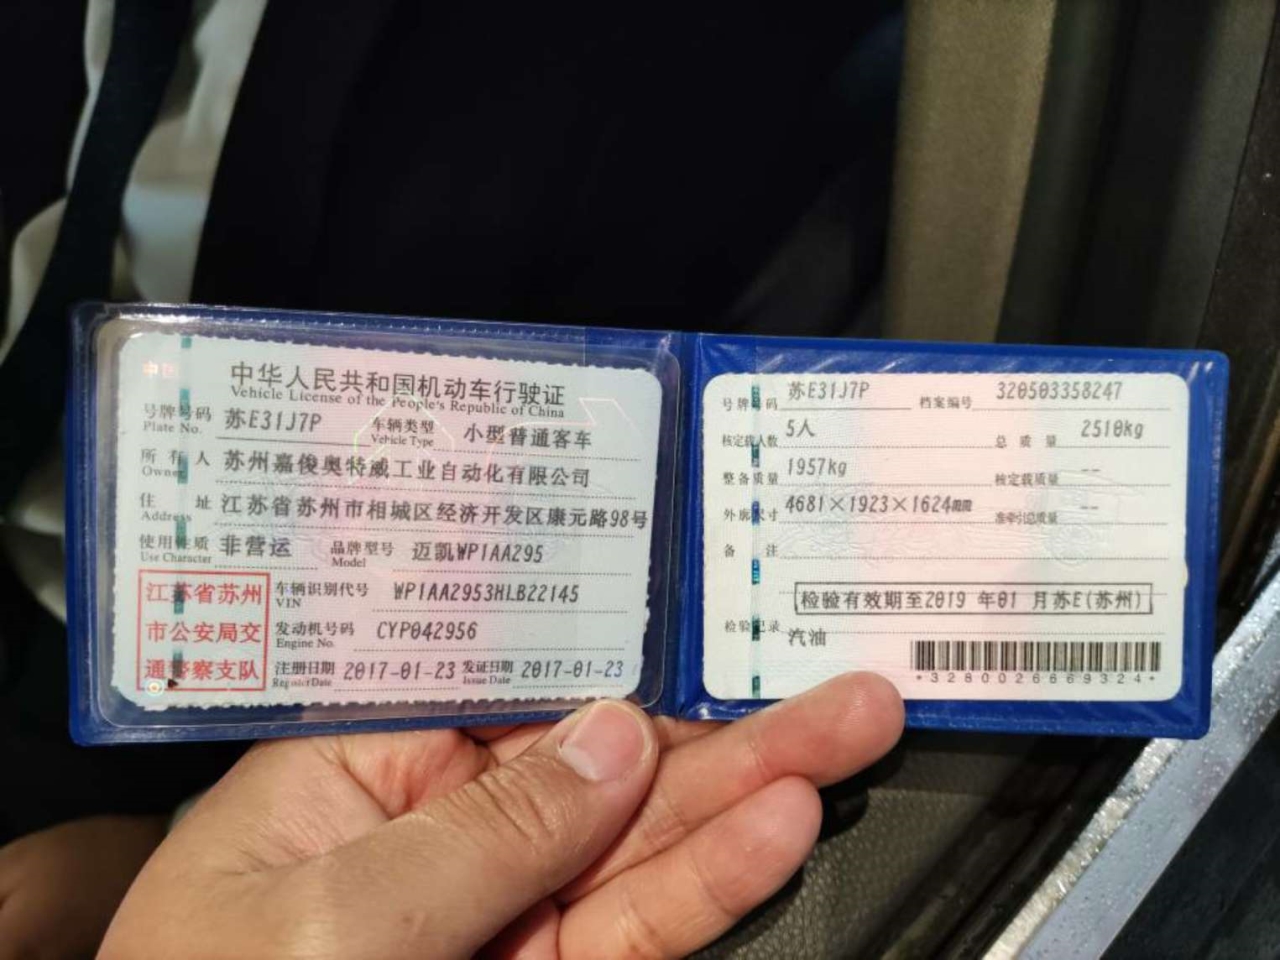 中国
中华人民共和国机动车行驶证
Vehicle License of the People's Republic of China
号牌号码 苏E31J7P 车辆类型 小型普通客车
Plate No. Vehicle Type
所有人 苏州嘉俊奥特威工业自动化有限公司
Owner
住址 江苏省苏州市相城区经济开发区康元路98号
Address
使用性质 非营运 品牌型号 迈凯WP1AA295
Use Character Model
江苏省苏州
市公安局交
通警察支队
车辆识别代号 WP1AA2953HLB22145
VIN
发动机号码 CYP042956
Engine No.
注册日期 2017-01-23 发证日期 2017-01-23
Register Date Issue Date
号牌号码 苏E31J7P 档案编号 320503358247
核定载人数 5人 总质量 2510kg
整备质量 1957kg 核定载质量 --
外廓尺寸 4681×1923×1624mm 准牵引总质量 --
备注
检验有效期至2019 年01 月苏E(苏州)
检验记录
汽油
*3280026669324*